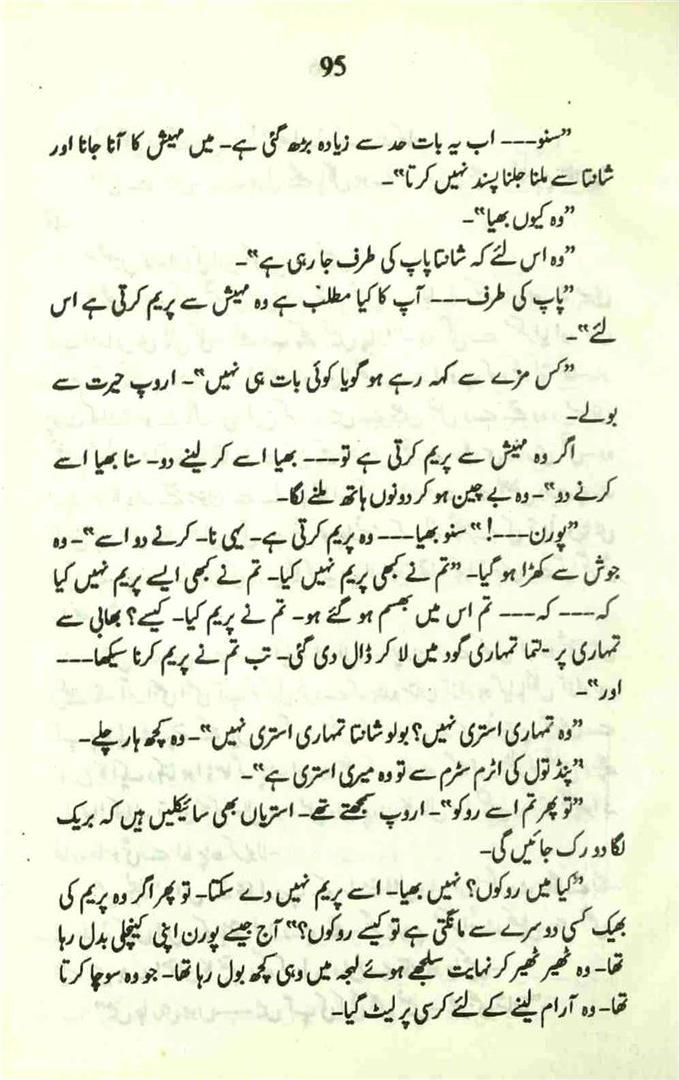 95
"سنو--- اب یہ بات حد سے زیادہ بڑھ گئی ہے۔ میں مہیش کا آنا جانا اور
شانتا سے ملنا جلنا پسند نہیں کرتا"۔
"وہ کیوں بھیا"۔
"وہ اس لئے کہ شانتا پاپ کی طرف جا رہی ہے"۔
"پاپ کی طرف--- آپ کا کیا مطلب ہے وہ مہیش سے پریم کرتی ہے اس
لئے"۔
"کس مزے سے کہہ رہے ہو گویا کوئی بات ہی نہیں"۔ اروپ حیرت سے
بولے۔
اگر وہ مہیش سے پریم کرتی ہے تو--- بھیا اسے کر لینے دو۔ سنا بھیا اسے
کرنے دو"۔ وہ بے چین ہو کر دونوں ہاتھ ملنے لگا۔
"پورن---!" سنو بھیا--- وہ پریم کرتی ہے۔ یہی نا۔ کرنے دو اسے"۔ وہ
جوش سے کھڑا ہو گیا۔ "تم نے کبھی پریم نہیں کیا۔ تم نے کبھی ایسے پریم نہیں کیا
کہ--- کہ--- تم اس میں بھسم ہو گئے ہو۔ تم نے پریم کیا۔ کیسے؟ بھابی سے
تمہاری پر -لتما تمہاری گود میں لا کر ڈال دی گئی۔ تب تم نے پریم کرنا سیکھا---
اور"۔
"وہ تمہاری استری نہیں؟ بولو شانتا تمہاری استری نہیں"۔ وہ کچھ ہار چلے۔
"پنڈتوں کی اٹرم سٹرم سے تو وہ میری استری ہے"۔
"تو پھر تم اسے روکو"۔ اروپ سمجھتے تھے۔ استریاں بھی سائیکلیں ہیں کہ بریک
لگا دو رک جائیں گی۔
"کیا میں روکوں؟ نہیں بھیا۔ اسے پریم نہیں دے سکتا۔ تو پھر اگر وہ پریم کی
بھیک کسی دوسرے سے مانگتی ہے تو کیسے روکوں؟" آج جیسے پورن اپنی کینچلی بدل رہا
تھا۔ وہ ٹھیر ٹھیر کر نہایت سلجھے ہوئے لہجہ میں وہی کچھ بول رہا تھا۔ جو وہ سوچا کرتا
تھا۔ وہ آرام لینے کے لئے کرسی پر لیٹ گیا۔